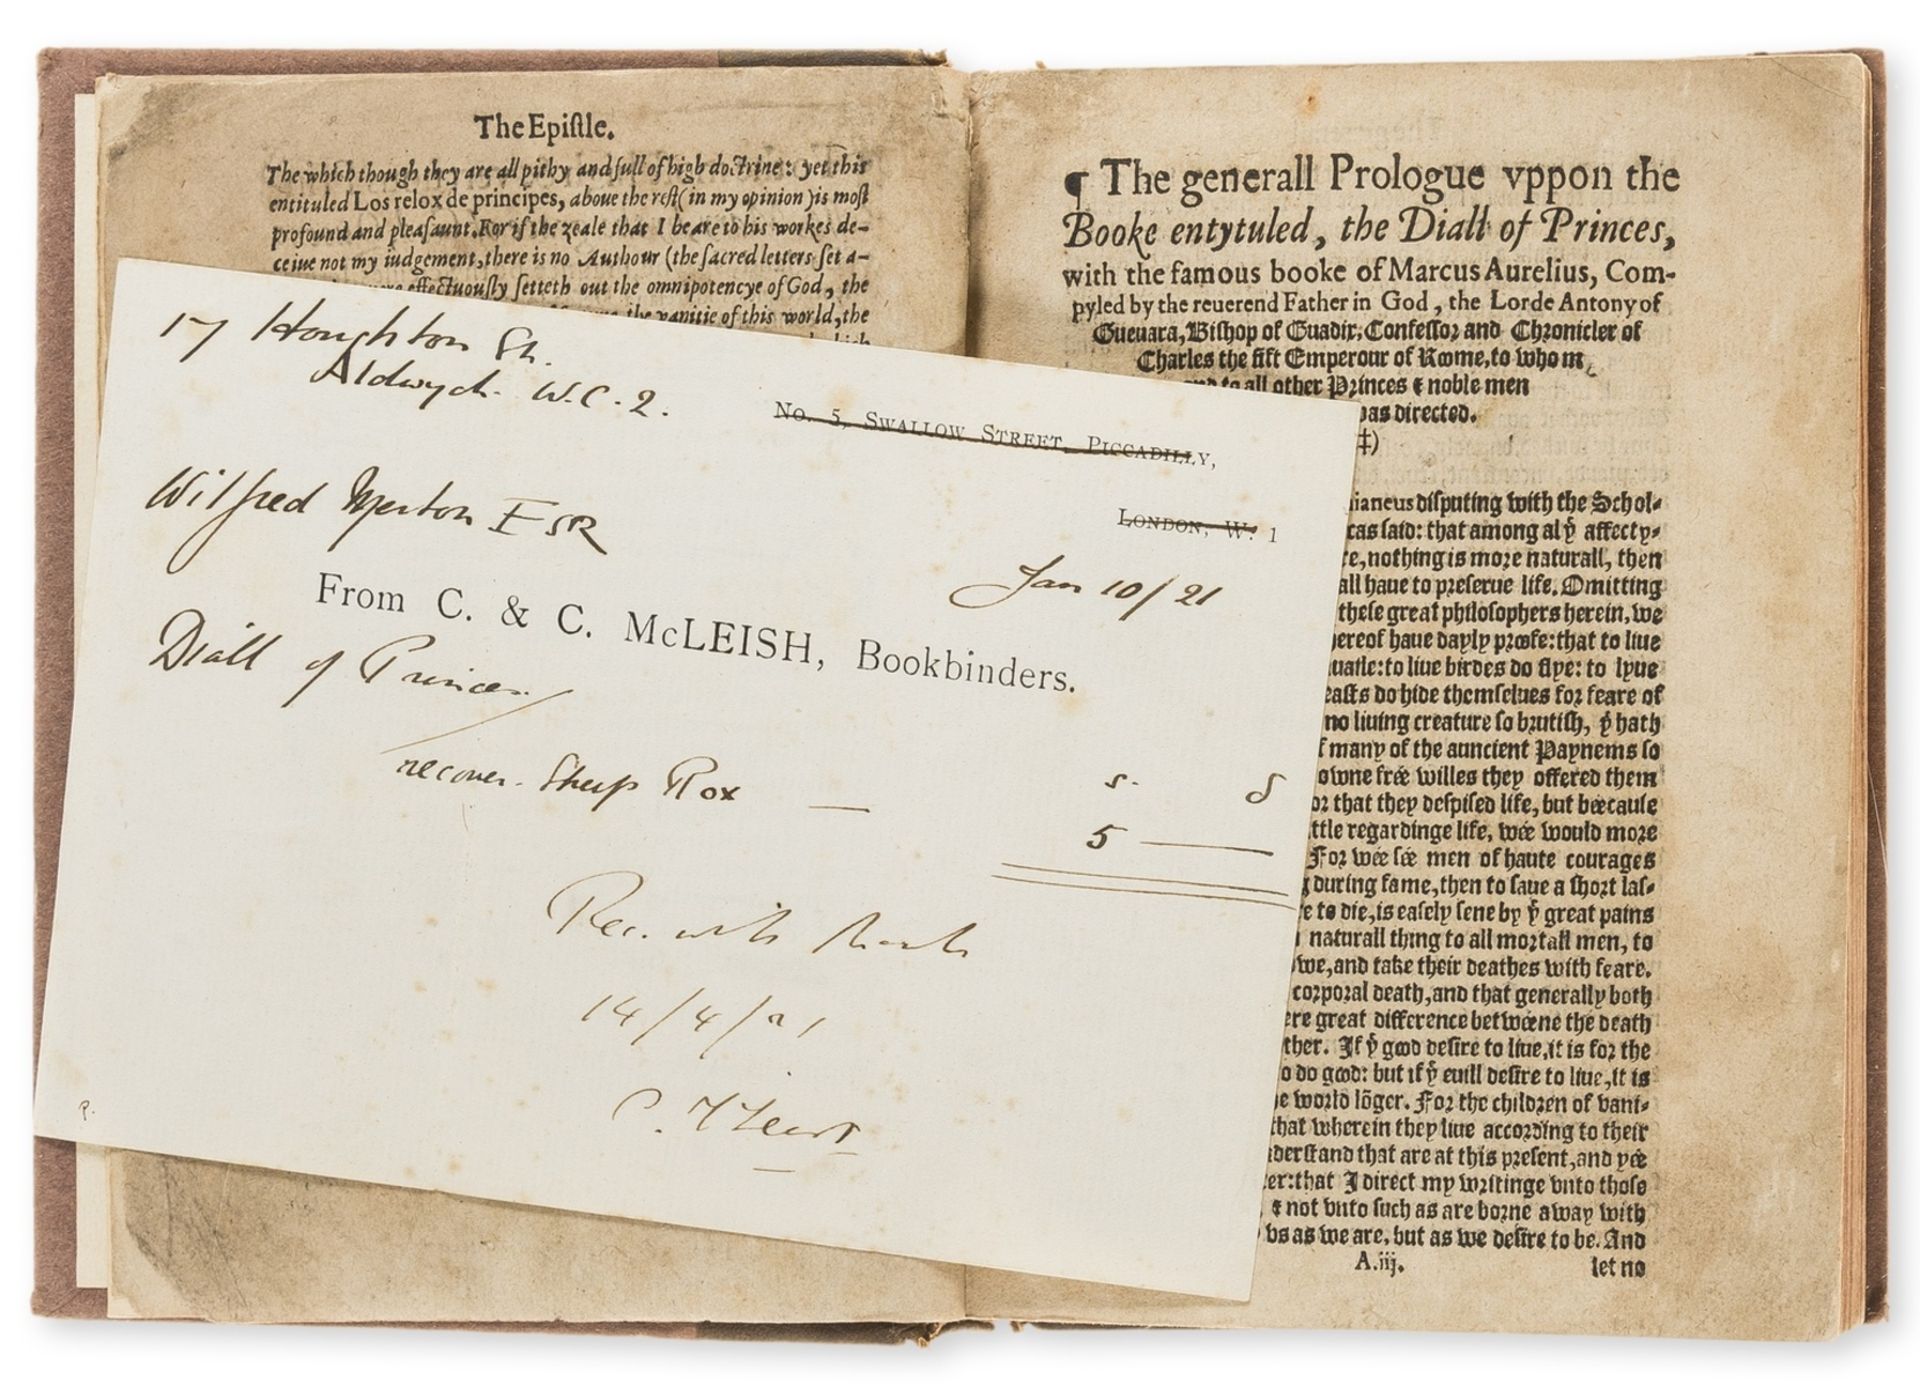 The Epiſtle.
The which though they are all pithy and full of high doctrine: yet this
entituled Los relox de principes, aboue the reſt (in my opinion) is moſt
profound and pleaſaunt. For if the zeale that I beare to his workes de-
ceiue not my iudgement, there is no Authour (the ſacred letters ſet a-
effectuouſly ſetteth out the omnipotencye of God, the
the vanitie of this world, the
17 Houghton St.
Aldwych. W.C.2.
No. 5, Swallow Street, Piccadilly,
London, W. 1
Wilfred Merton ESR
Jan 10/21
From C. & C. McLEISH, Bookbinders.
Diall of Princes
recover. Sheep Rox —
s. d
5 —
Rec. with thanks
14/4/21
P.
¶ The generall Prologue vppon the
Booke entytuled, the Diall of Princes,
with the famous booke of Marcus Aurelius, Com-
pyled by the reuerend Father in God, the Lorde Antony of
Gueuara, Biſhop of Guadix, Confeſſor and Chronicler of
Charles the fift Emperour of Rome, to whom
and to all other Princes & noble men
was directed.
‡)
ianeus diſputing with the Schol-
cas ſaid: that among al ẏ affecty-
re, nothing is more naturall, then
all haue to preſerue life. Omitting
theſe great philoſophers herein, we
hereof haue dayly proofe: that to liue
uaile: to liue birdes do flye: to lyue
eaſts do hide themſelues for feare of
no liuing creature ſo brutiſh, ẏ hath
f many of the auncient Paynems ſo
owne frée willes they offered them
or that they deſpiſed life, but bécauſe
ttle regardinge life, wée would more
For wée ſée men of haute courages
g during fame, then to ſaue a ſhort laſ-
e to die, is eaſely ſene by ẏ great pains
naturall thing to all mortall men, to
we, and take their deathes with feare.
corporal death, and that generally both
ere great difference betwéene the death
ther. If ẏ good deſire to liue, it is for the
o do good: but if ẏ euill deſire to liue, it is
e world lõger. For the children of vani-
that wherein they liue according to their
derſtand that are at this preſent, and yée
er: that I direct my writinge vnto thoſe
& not vnto ſuch as are borne away with
vs as we are, but as we deſire to be. And
A.iij.
let no